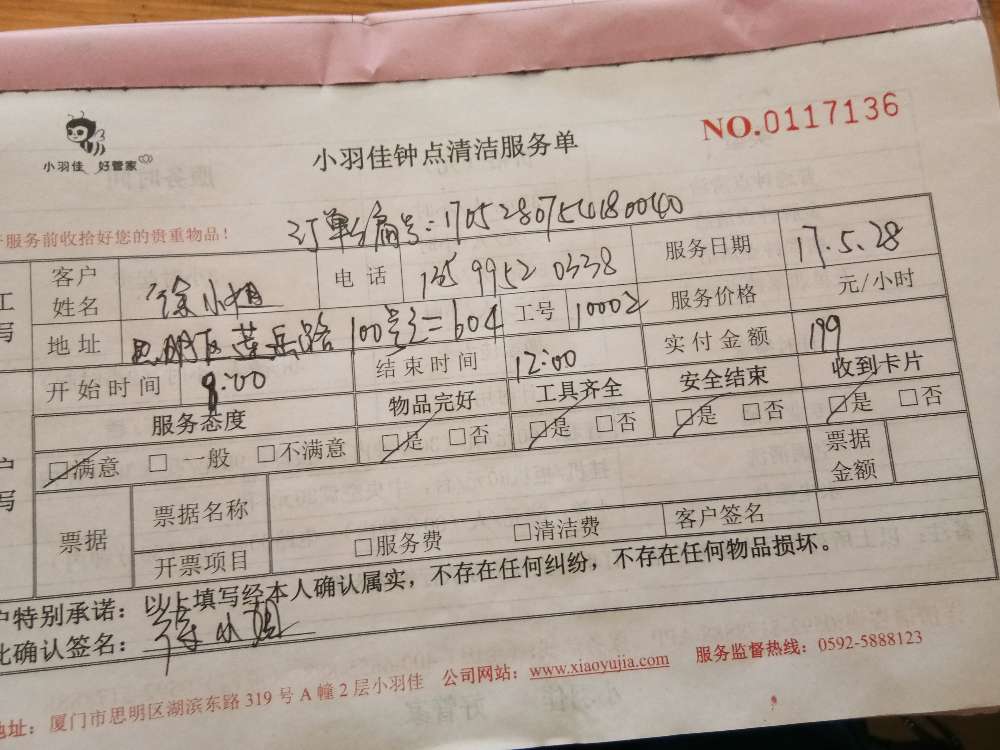 小羽佳 好管家
小羽佳钟点清洁服务单
NO.0117136
服务前收拾好您的贵重物品！
订单编号：1705280754180040
客户姓名 徐小姐 电话 135 9952 0338 服务日期 17.5.28
地址 思明区莲岳路100号之二604 工号 10002 服务价格 元/小时
开始时间 9:00 结束时间 12:00 实付金额 199
服务态度 物品完好 工具齐全 安全结束 收到卡片
□满意 □一般 □不满意 □是 □否 □是 □否 □是 □否 □是 □否
票据 票据名称 票据金额
开票项目 □服务费 □清洁费 客户签名
户特别承诺：以上填写经本人确认属实，不存在任何纠纷，不存在任何物品损坏。
此确认签名：徐小姐
地址：厦门市思明区湖滨东路319号A幢2层小羽佳 公司网站：www.xiaoyujia.com 服务监督热线：0592-5888123